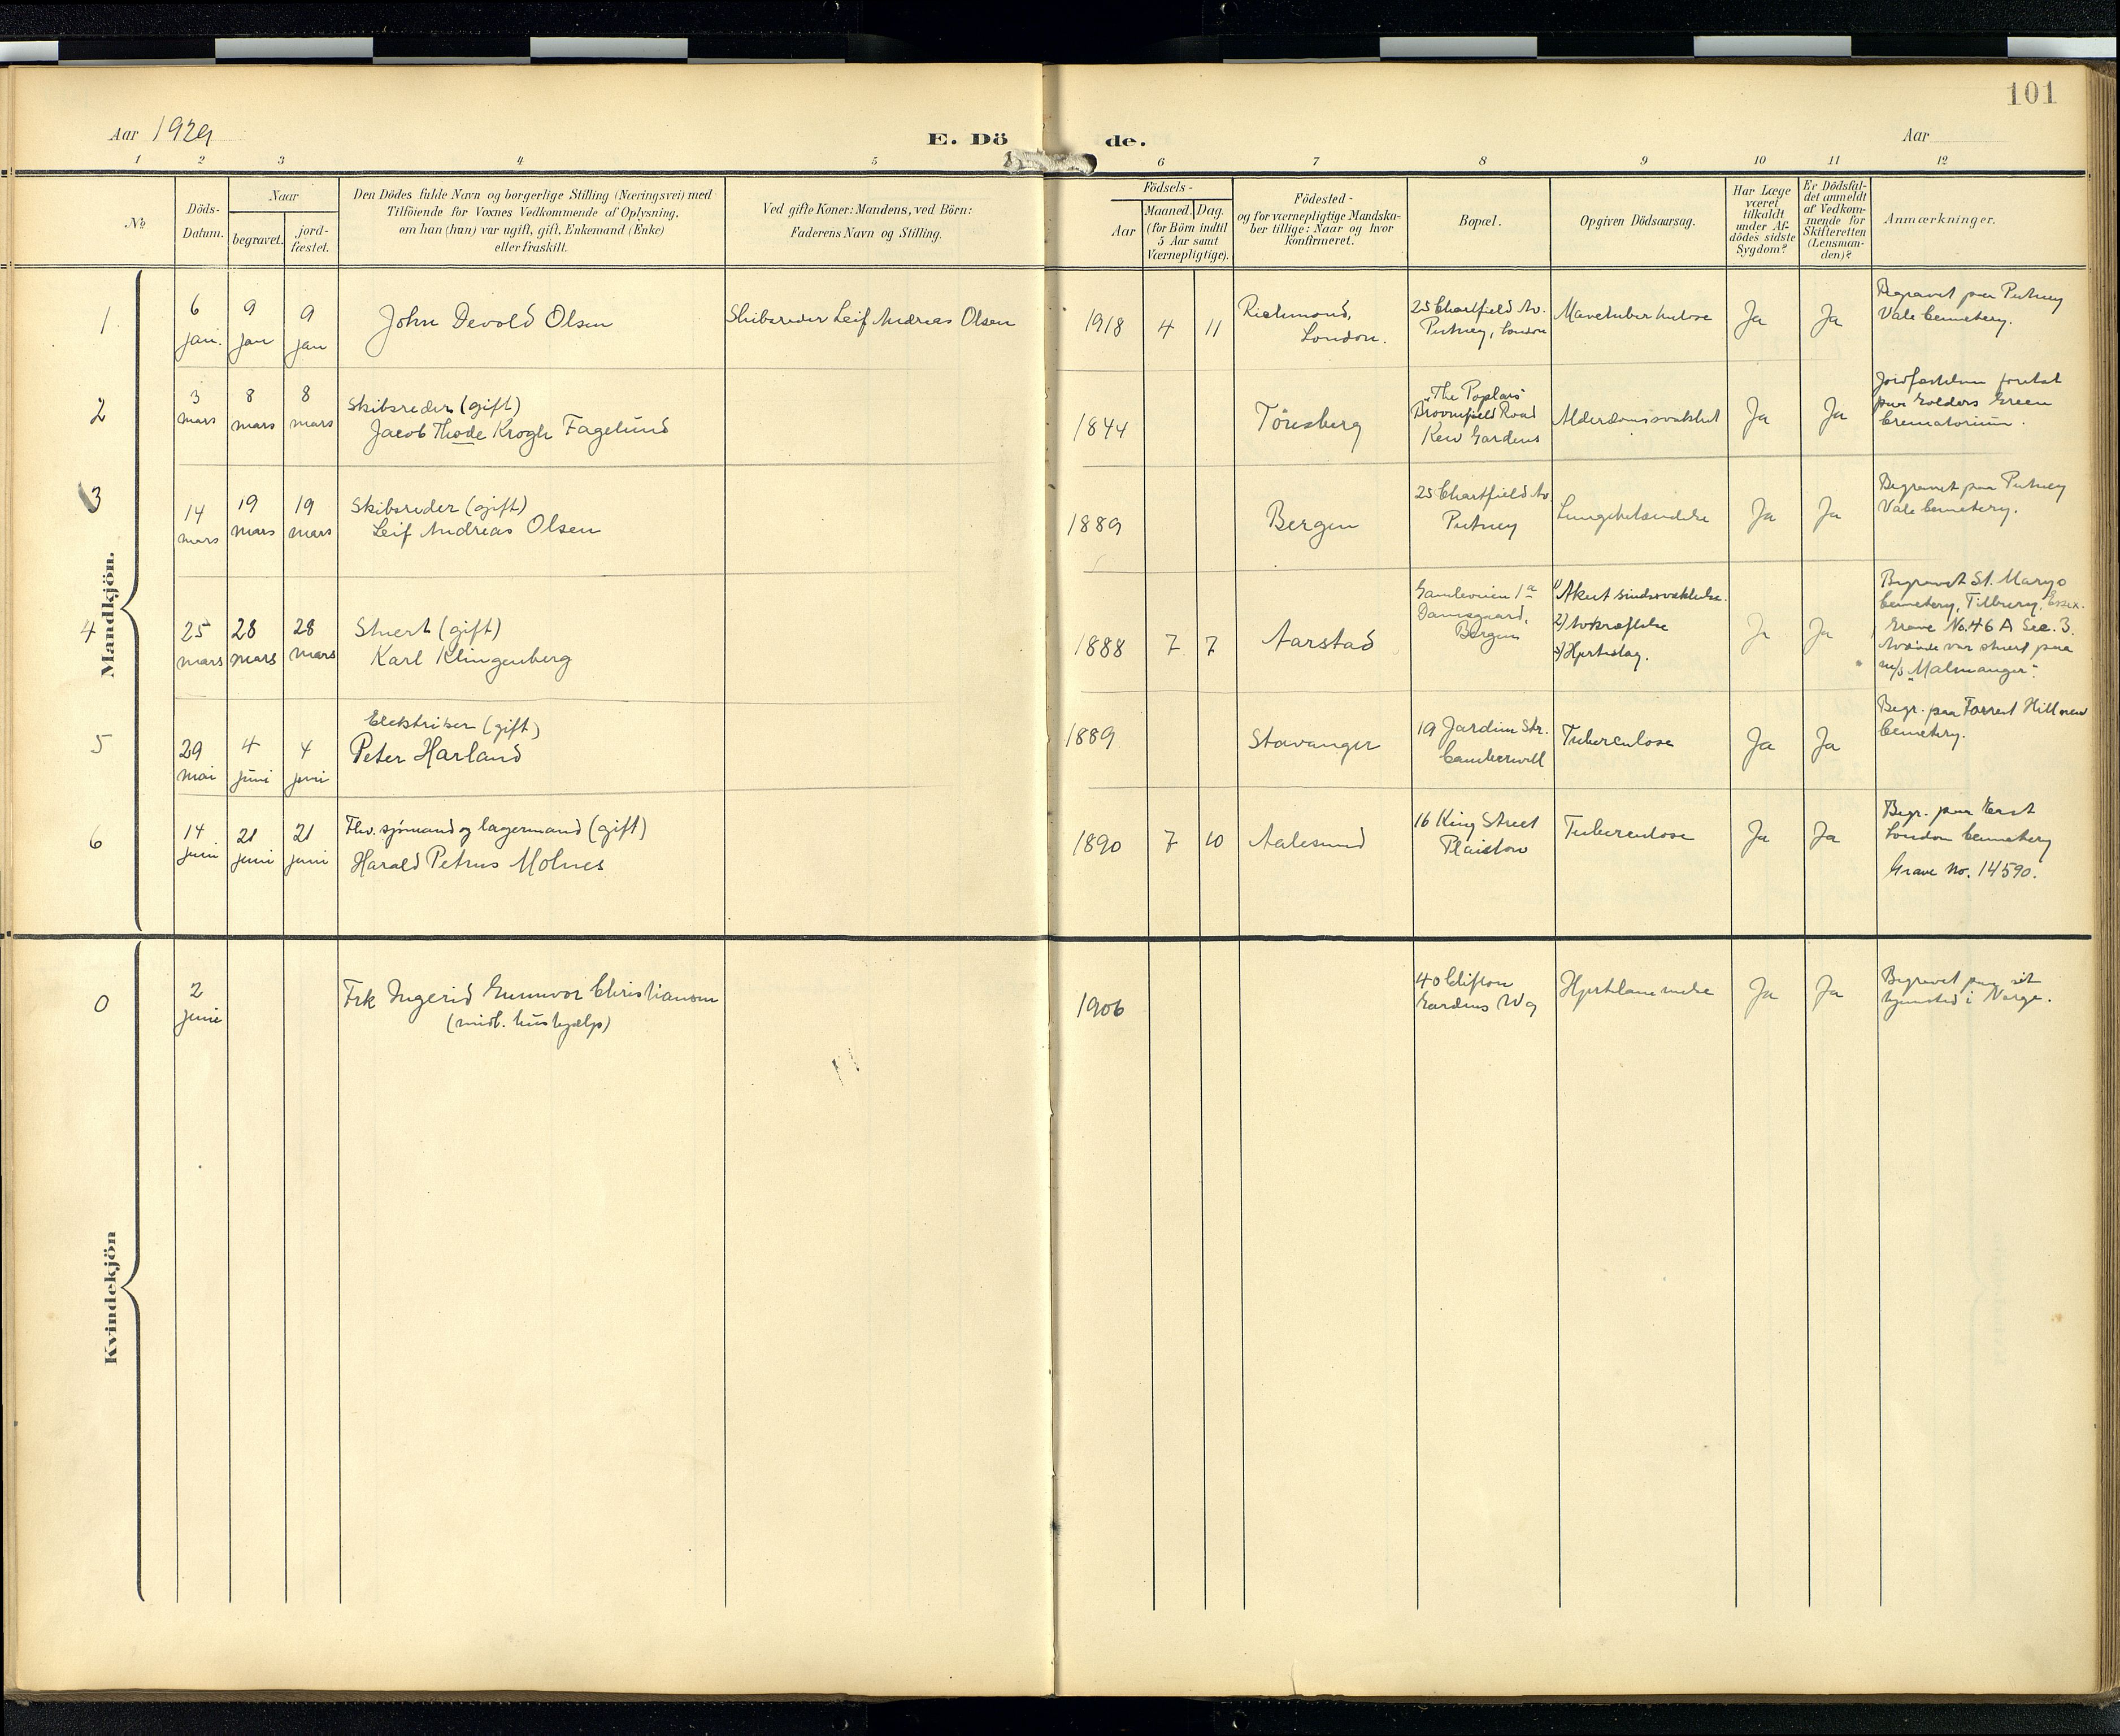 101
Aar 1929
E. Dö de.
Aar
1 2 3 4 5 6 7 8 9 10 11 12
No
Döds-
Datum.
Naar
begravet.
jord-
fæstet.
Den Dödes fulde Navn og borgerlige Stilling (Næringsvei) med
Tilföiende for Voxnes Vedkommende af Oplysning,
om han (hun) var ugift, gift, Enkemand (Enke)
eller fraskilt.
Ved gifte Koner: Mandens, ved Börn:
Faderens Navn og Stilling.
Födsels-
Aar
Maaned. Dag.
(for Börn indtil
5 Aar samt
Værnepligtige).
Födested-
og for værnepligtige Mandska-
ber tillige: Naar og hvor
konfirmeret.
Bopæl.
Opgiven Dödsaarsag.
Har Læge
været
tilkaldt
under Af-
dödes sidste
Sygdom?
Er Dödsfal-
det anmeldt
af Vedkom-
mende for
Skifteretten
(Lensman-
den)?
Anmærkninger.
Mandkjön.
1
6
jan.
9
jan
9
jan
John Devold Olsen
Skibsreder Leif Andreas Olsen
1918 4 11
Richmond,
London.
25 Chartfield Av.
Putney, London
Mavetuberkulose
Ja
Ja
Begravet paa Putney
Vale Cemetery.
2
3
mars
8
mars
8
mars
Skibsreder (gift)
Jacob Thode Krogh Fagelund
1844
Tönsberg
"The Poplars"
Broomfield Road
Kew Gardens
Alderdomssvakhet
Ja
Ja
Jordfæstelsen foretat
paa Golders Green
Crematorium.
3
14
mars
19
mars
19
mars
Skibsreder (gift)
Leif Andreas Olsen
1889
Bergen
25 Chartfield Av.
Putney
Lungebetændelse
Ja
Ja
Begravet paa Putney
Vale Cemetery.
4
25
mars
28
mars
28
mars
Stuert (gift)
Karl Klingenberg
1888 7 7
Aarstad
Gamleveien 1a
Damsgaard,
Bergen
1) Akut sindssvækkelse.
2) Avkræftelse
3) Hjerteslag.
Ja
Ja
Begravet St. Marys
Cemetery, Tilbury, Essex.
Grave No. 46 A Sec. 3.
Avdøde var stuert paa
m/s "Malmanger".
5
29
mai
4
juni
4
juni
Elektriker (gift)
Peter Harland
1889
Stavanger
19 Jardin Str.
Camberwell
Tuberculose
Ja
Ja
Begr. paa Forrest Hill new
Cemetery.
6
14
juni
21
juni
21
juni
Fhv. sjømand og lagermand (gift)
Harald Petrus Molnes
1890 7 10
Aalesund
16 King Street
Plaistow
Tuberculose
Ja
Ja
Begr. paa East
London Cemetery
Grave No. 14590.
Kvindekjön
0
2
juni
Frk Ingerid Gunnvor Christiansen
(midl. hushjælp)
1906
40 Clifton
Gardens W9
Hjertelammelse
Ja
Ja
Begravet paa sit
hjemsted i Norge.